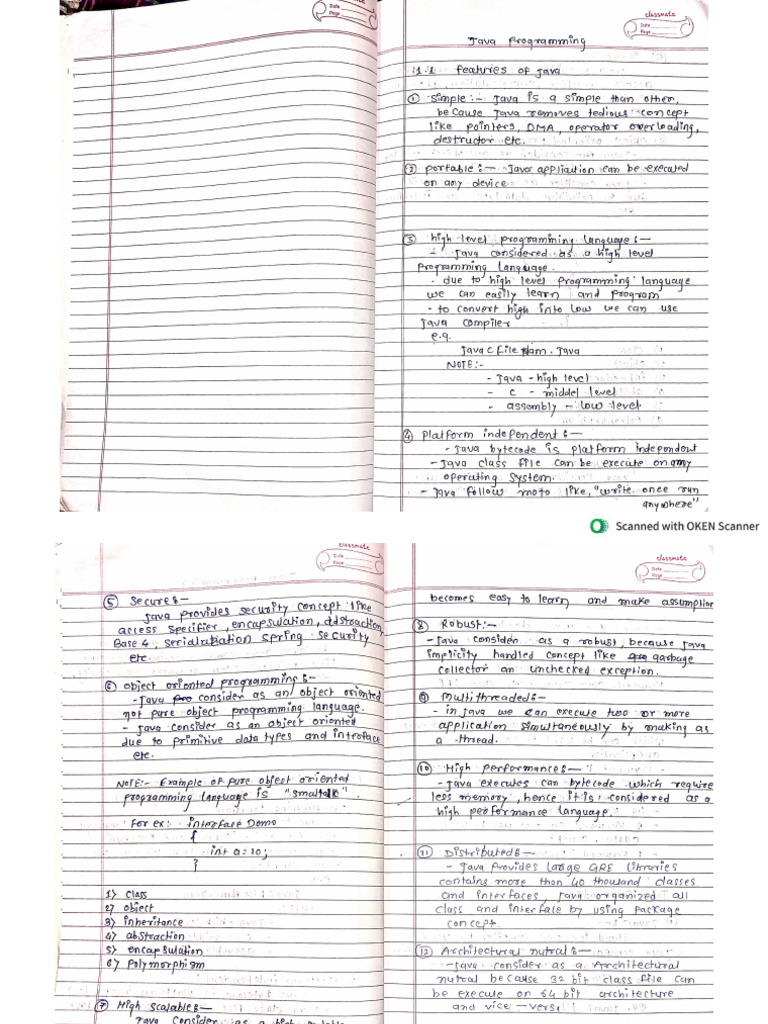 classmate
Date
Page
Java Programming
1.1 features of Java
① Simple :- Java is a simple than other,
because Java removes tedious concept
like pointers, DMA, operator overloading,
destructor etc.
② portable :- Java appliaction can be executed
on any device
③ high level programming language :-
- Java considered as a high level
programming language.
- due to high level programming language
we can easily learn and program
- to convert high into low we can use
Java compiler
e.g.
Java c file nam . Java
NOTE :-
- Java - high level
- c - middel level
- assembly - low level
④ Platform independent :-
- Java bytecode is platform independent
- Java class file can be execute on any
operating system.
- Java follow moto like, "write once run
anywhere"
Scanned with OKEN Scanner
classmate
Date
Page
⑤ Secure :-
Java provides security concept like
access specifier, encapsulation, abstraction,
Base 4, serialization spring security
etc.
⑥ object oriented programming :-
- Java consider as an object oriented
not pure object programming language.
- Java consider as an object oriented
due to primitive data types and interface
etc.
NOTE :- Example of pure object oriented
programming language is "smaltalk".
for ex: interface Demo
{
int a = 10;
}
1) class
2) object
3) inheritance
4) abstraction
5) encapsulation
6) Polymorphism
⑦ High Scalable :-
Java consider as a high
classmate
Date
Page
becomes easy to learn and make assumption
⑧ Robust :-
- Java consider as a robust, because Java
implicity handled concept like garbage
collector an unchecked exception.
⑨ Multithreaded :-
- in Java we can execute two or more
application simultaneously by making as
a thread.
⑩ High performance :-
- Java executes can bytecode which require
less memory, hence it is considered as a
high performance language.
⑪ Distributed :-
- Java Provides large GRE libraries
contains more than 40 thousand classes
and interfaces, Java organized all
class and interface by using package
concept.
⑫ Architectural nutral :-
- Java consider as a Architectural
nutral because 32 bit class file can
be execute on 64 bit architecture
and vice - versa